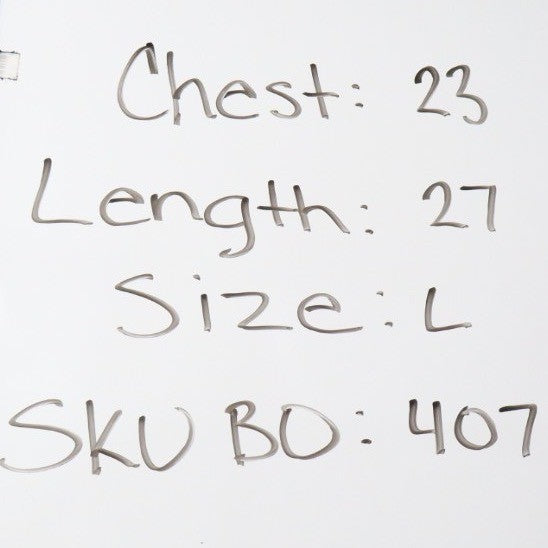 Chest: 23
Length: 27
Size: L
SKU BO: 407